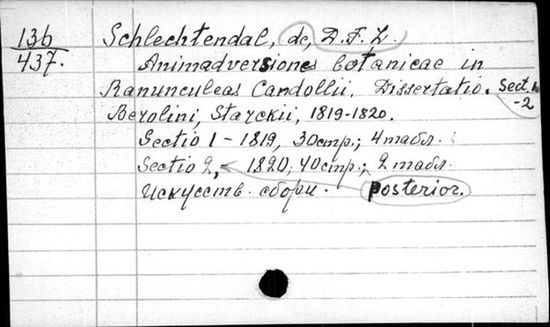 136 Schlechtendal, de, D.F.L.
437. Animadversiones botanicae in
Ranunculeas Candollii. Dissertatio. Sect. 1
-2
Berolini, Starckii, 1819-1820.
Sectio 1 - 1819, 30 стр.; 4 табл.
Sectio 2, 1820, 40 стр.; 2 табл.
Искусств. сборн. posterior.